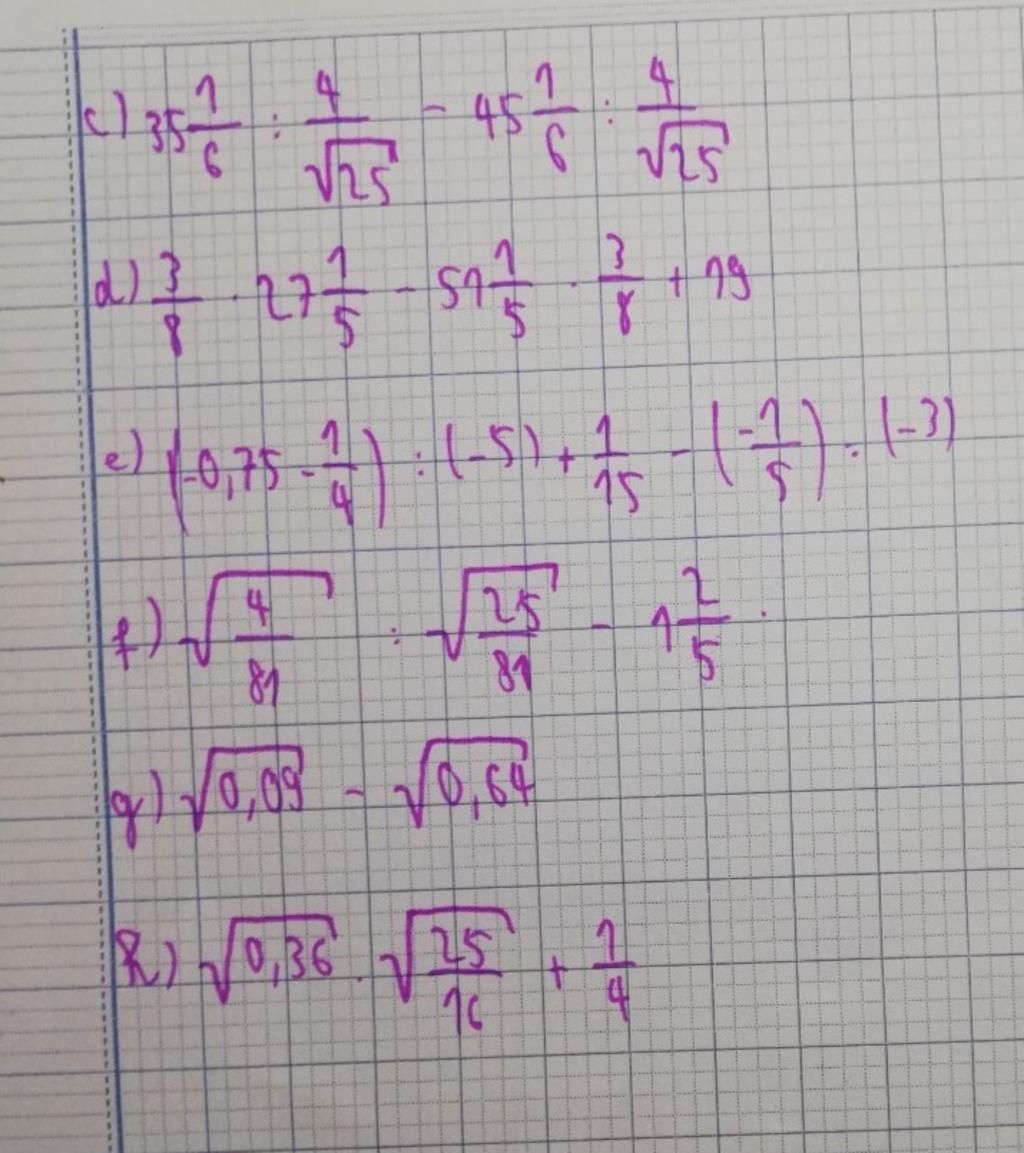 c) 35 1/6 : 4/√25 - 45 1/6 : 4/√25
d) 3/8 . 27 1/5 - 51 1/5 . 3/8 + 19
e) (-0,75 - 1/4) : (-5) + 1/15 - (-1/5) : (-3)
f) √(4/81) : √(25/81) - 1 2/5 .
g) √0,09 - √0,64
h) √0,36 . √(25/16) + 1/4